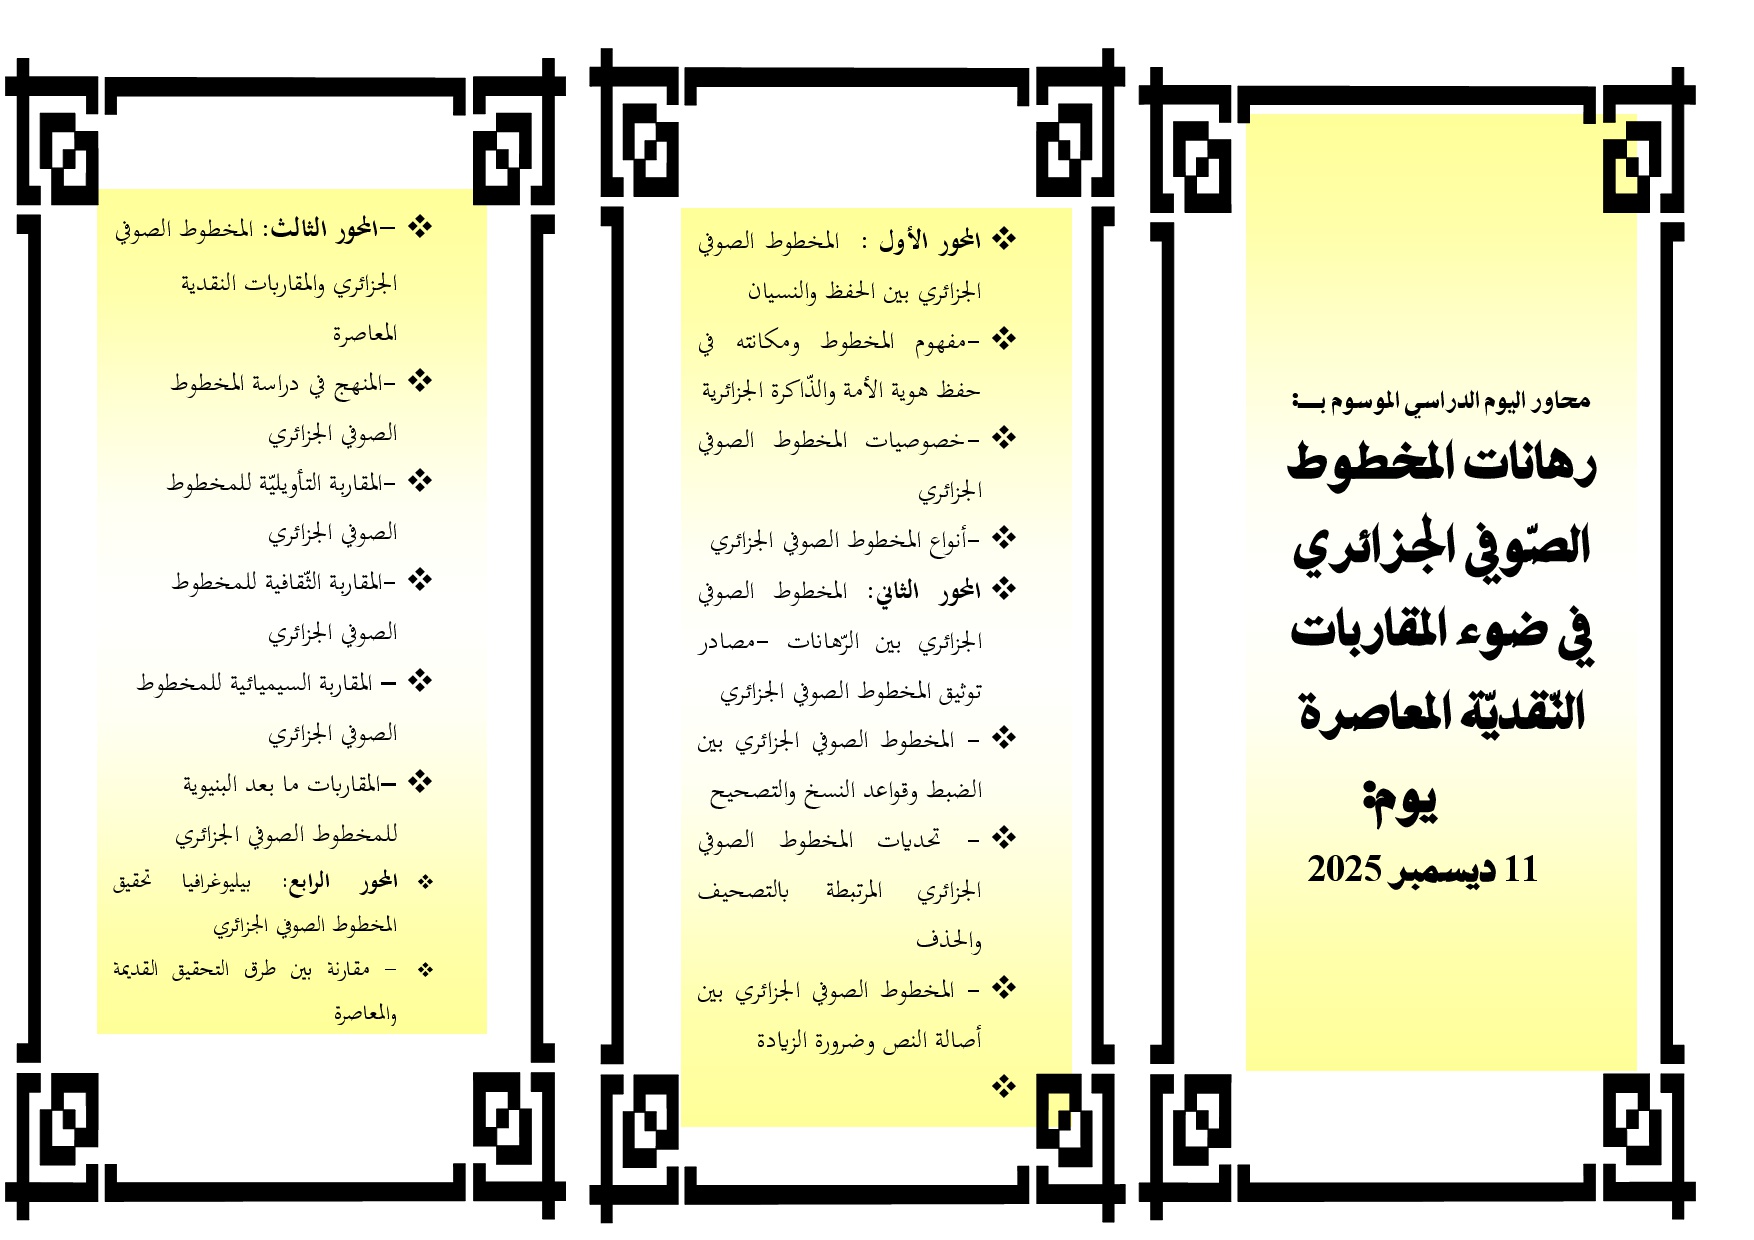 محاور اليوم الدراسي الموسوم بـــ:
رهانات المخطوط
الصّوفي الجزائري
في ضوء المقاربات
النّقديّة المعاصرة
يوم:
11 ديسمبر 2025
❖ المحور الأول : المخطوط الصوفي
الجزائري بين الحفظ والنسيان
❖ -مفهوم المخطوط ومكانته في
حفظ هوية الأمة والذّاكرة الجزائرية
❖ -خصوصيات المخطوط الصوفي
الجزائري
❖ -أنواع المخطوط الصوفي الجزائري
❖ المحور الثاني: المخطوط الصوفي
الجزائري بين الرّهانات -مصادر
توثيق المخطوط الصوفي الجزائري
❖ - المخطوط الصوفي الجزائري بين
الضبط وقواعد النسخ والتصحيح
❖ - تحديات المخطوط الصوفي
الجزائري المرتبطة بالتصحيف
والحذف
❖ - المخطوط الصوفي الجزائري بين
أصالة النص وضرورة الزيادة
❖
❖ -المحور الثالث: المخطوط الصوفي
الجزائري والمقاربات النقدية
المعاصرة
❖ -المنهج في دراسة المخطوط
الصوفي الجزائري
❖ -المقاربة التأويليّة للمخطوط
الصوفي الجزائري
❖ -المقاربة الثّقافية للمخطوط
الصوفي الجزائري
❖ - المقاربة السيميائية للمخطوط
الصوفي الجزائري
❖ -المقاربات ما بعد البنيوية
للمخطوط الصوفي الجزائري
❖ المحور الرابع: بيليوغرافيا تحقيق
المخطوط الصوفي الجزائري
❖ - مقارنة بين طرق التحقيق القديمة
والمعاصرة